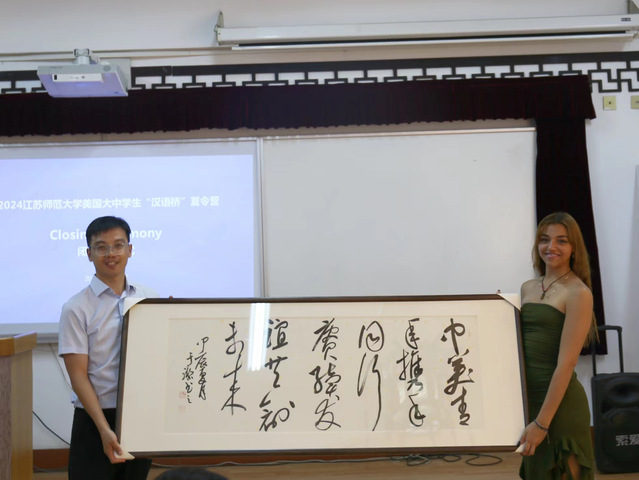 2024江苏师范大学美国大中学生“汉语桥”夏令营
Closin
mony
中美青
年携手
同行
賡續友
誼共創
未来
甲辰夏月
索爱